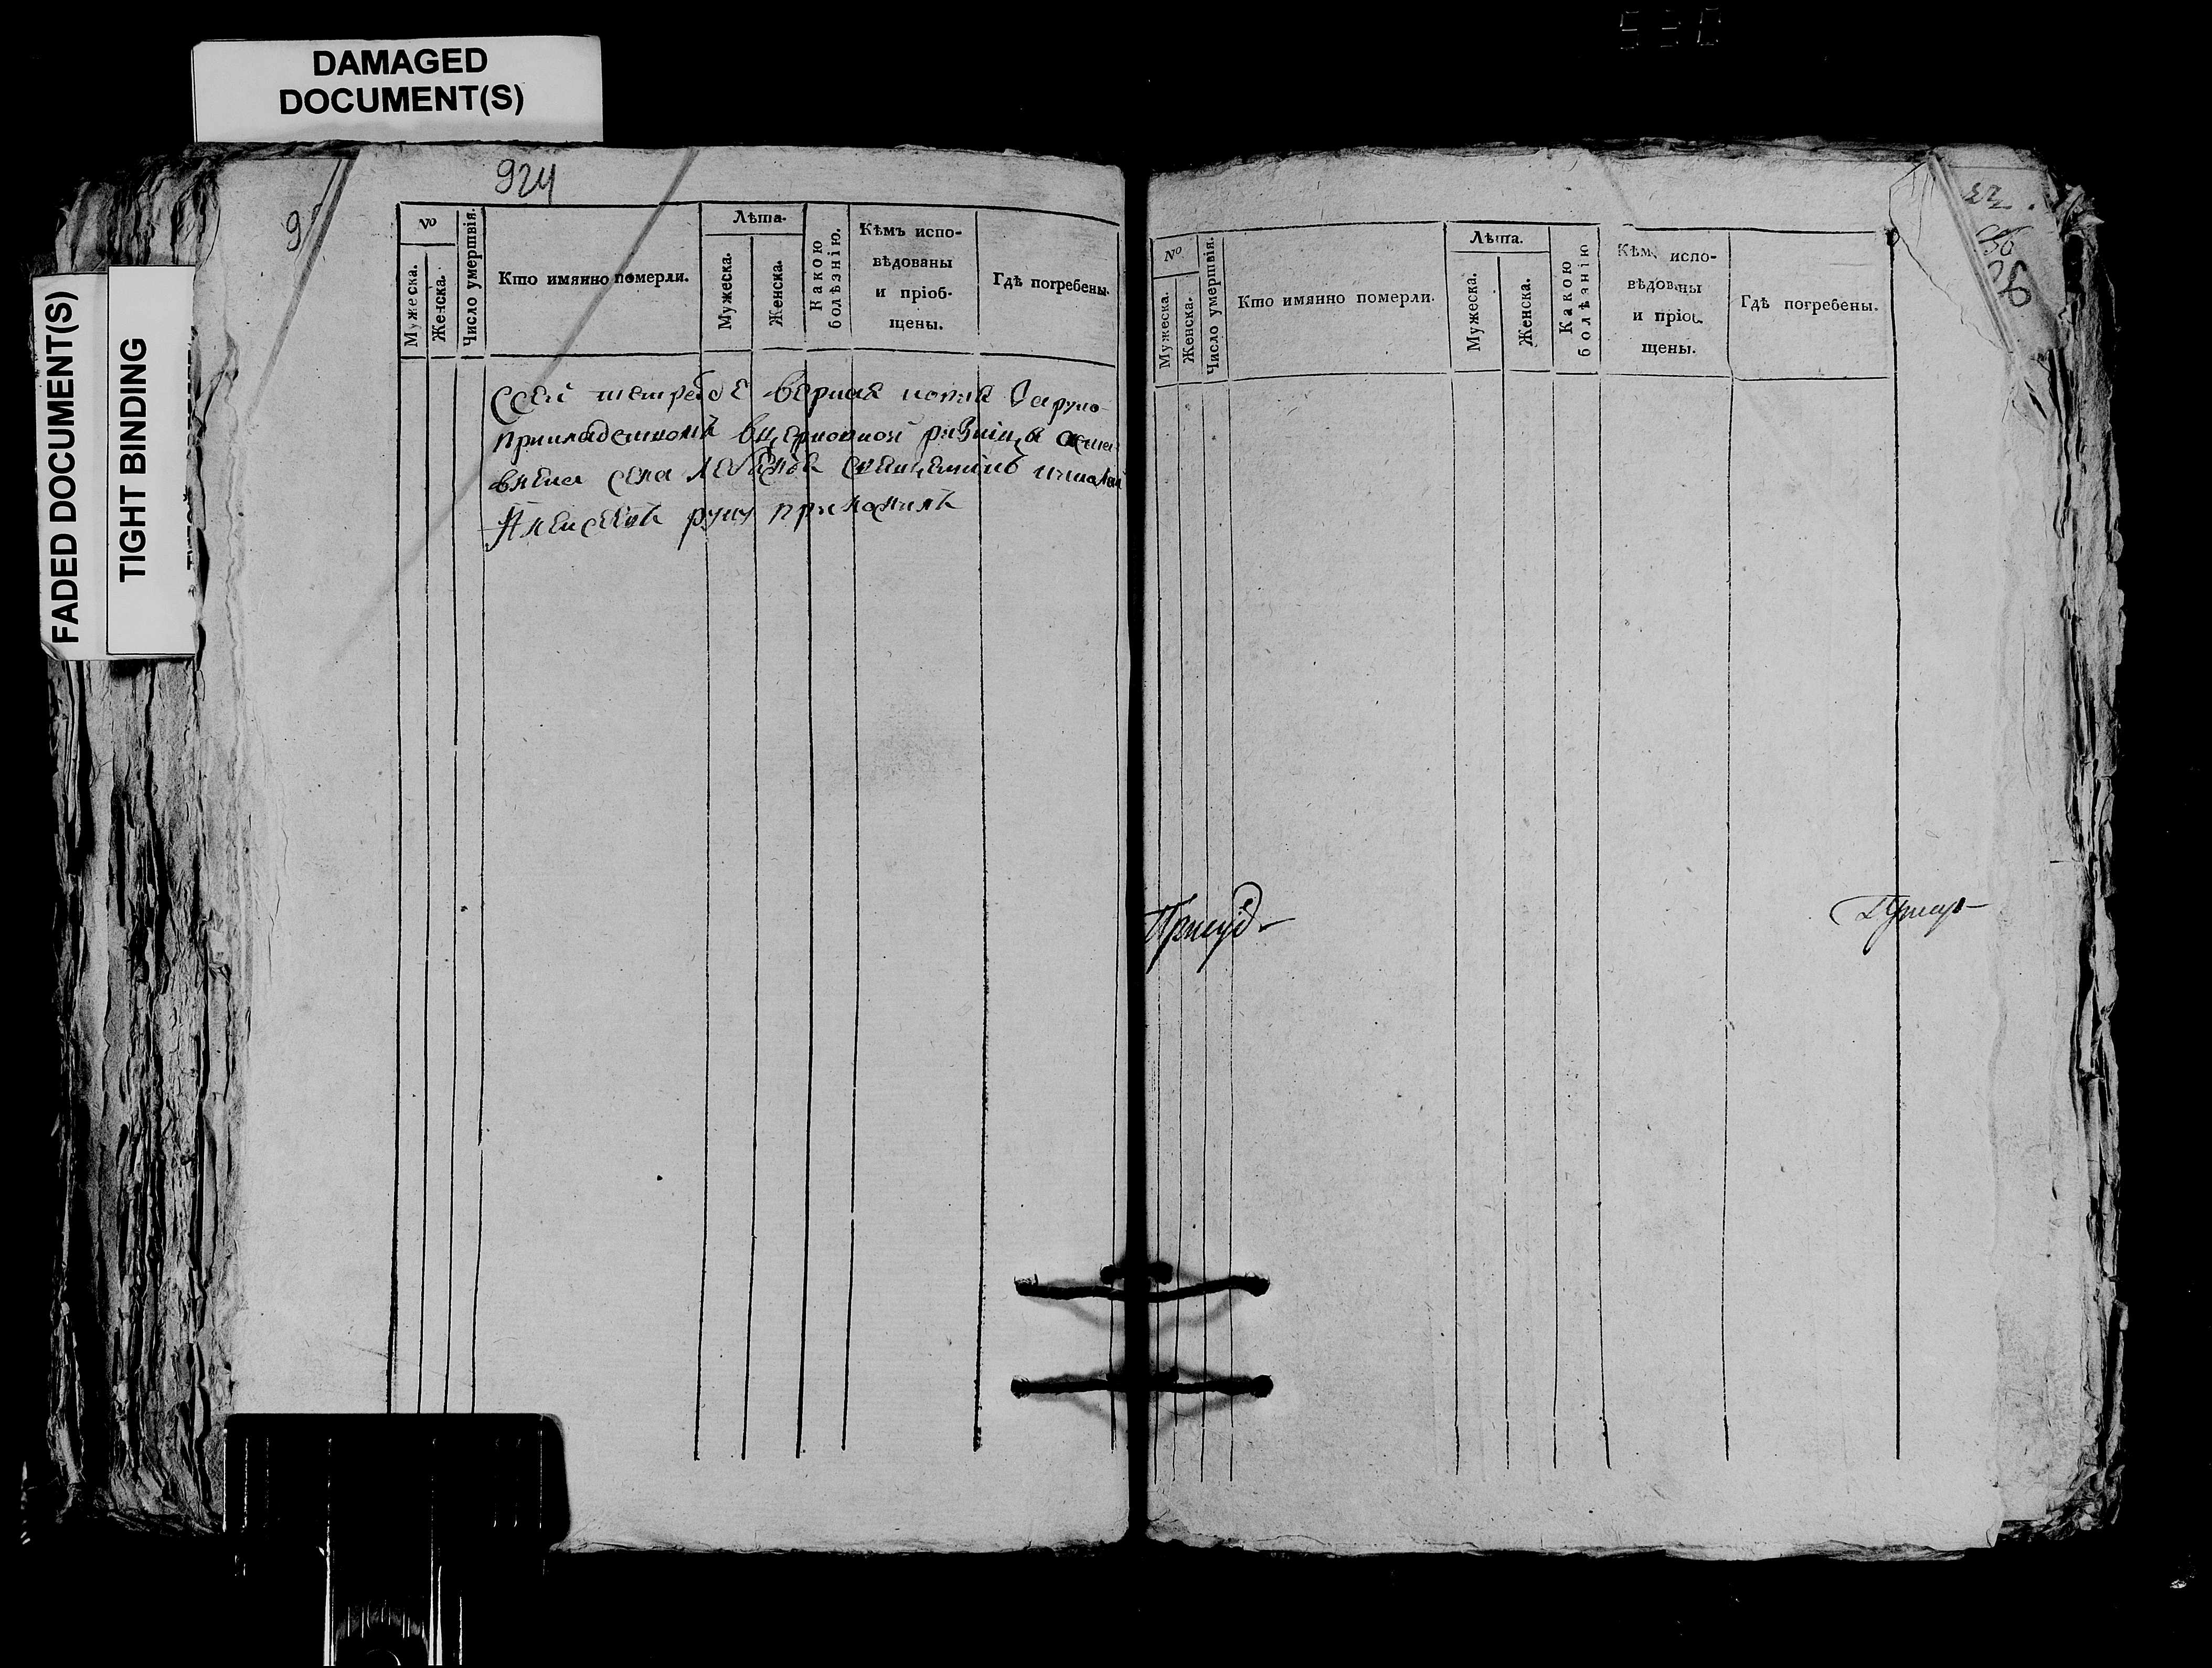 530
DAMAGED
DOCUMENT(S)
FADED DOCUMENT(S)
TIGHT BINDING
924
9
№
Мужеска.
Женска.
Число умертвія.
Кто имянно померли.
Лѣта.
Мужеска.
Женска.
Какою
болѣзнію.
Кѣмъ испо-
вѣдованы
и пріоб-
щены.
Гдѣ погребены.
Сей тетраде верная копия за руко
прикладствомъ вцерковной ризницы оста
влена села священникъ
Алексеевъ руку приложилъ
26
№
Мужеска.
Женска.
Число умертвія.
Кто имянно померли.
Лѣта.
Мужеска.
Женска.
Какою
болѣзнію
Кѣмъ испо-
вѣдованы
и пріоб-
щены.
Гдѣ погребены.